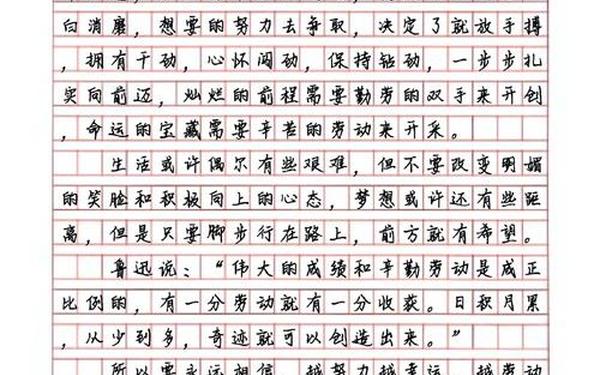 白消磨，想要的努力去争取，决定了就放手搏
，拥有干劲，心怀闯劲，保持钻劲，一步步扎
实向前迈，灿烂的前程需要勤劳的双手来开创
，命运的宝藏需要辛苦的劳动来开采。
生活或许偶尔有些艰难，但不要改变明媚
的笑脸和积极向上的心态，梦想或许还有些距
离，但是只要脚步行在路上，前方就有希望。
鲁迅说：“伟大的成绩和辛勤劳动是成正
比例的，有一分劳动就有一分收获。日积月累
，从少到多，奇迹就可以创造出来。”
所以要永远相信，越努力越幸运，越劳动